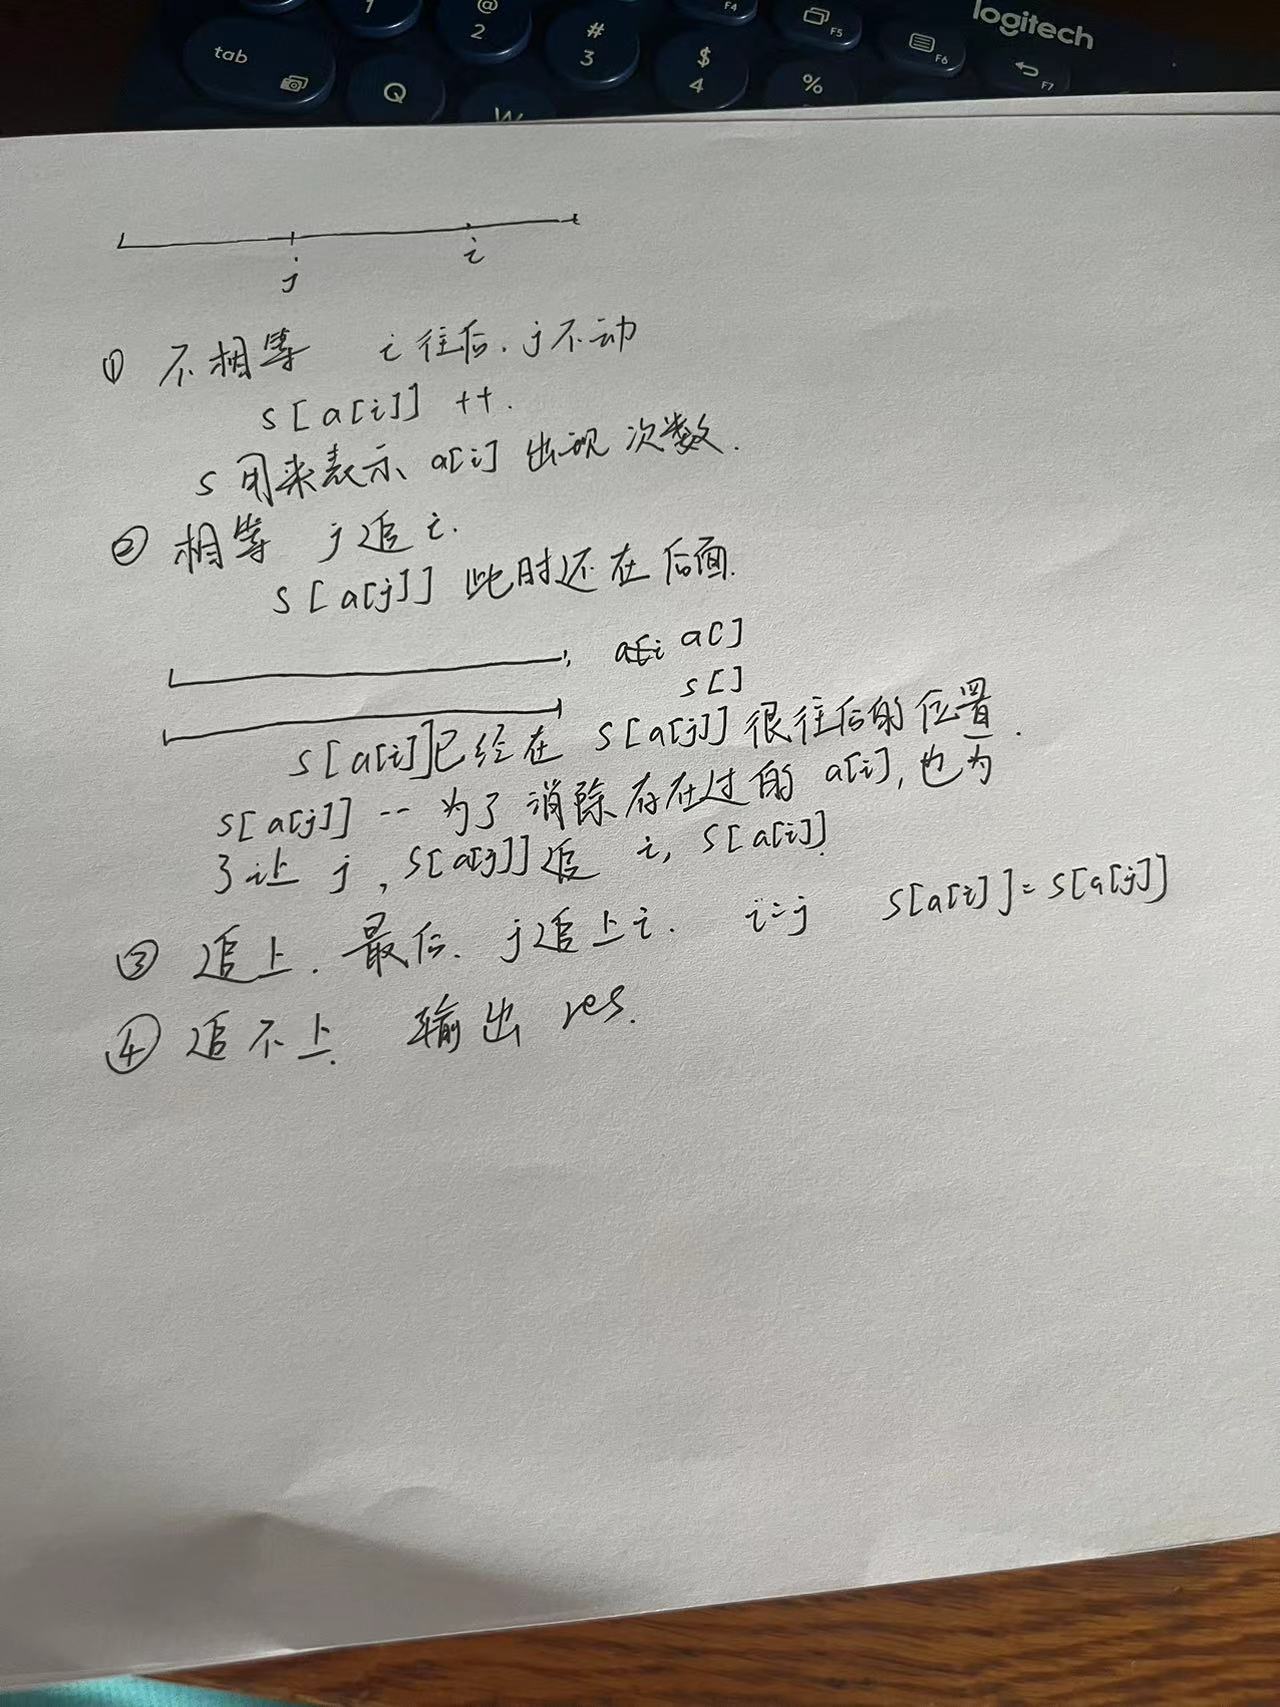 logitech
1
@
2
#
3
$
4
%
F4
F5
F6
F7
tab
Q
W
j i
① 不相等 i往后. j不动
s[a[i]] ++.
s 用来表示 a[i] 出现次数.
② 相等 j追i.
s[a[j]] 此时还在后面.
a[] 
s[]
s[a[i]]已经在 s[a[j]]很往后的位置.
s[a[j]] -- 为了消除存在过的 a[i], 也为
了让 j, s[a[j]]追 i, s[a[i]].
③ 追上. 最后. j追上i. i=j s[a[i]]=s[a[j]]
④ 追不上. 输出 res.